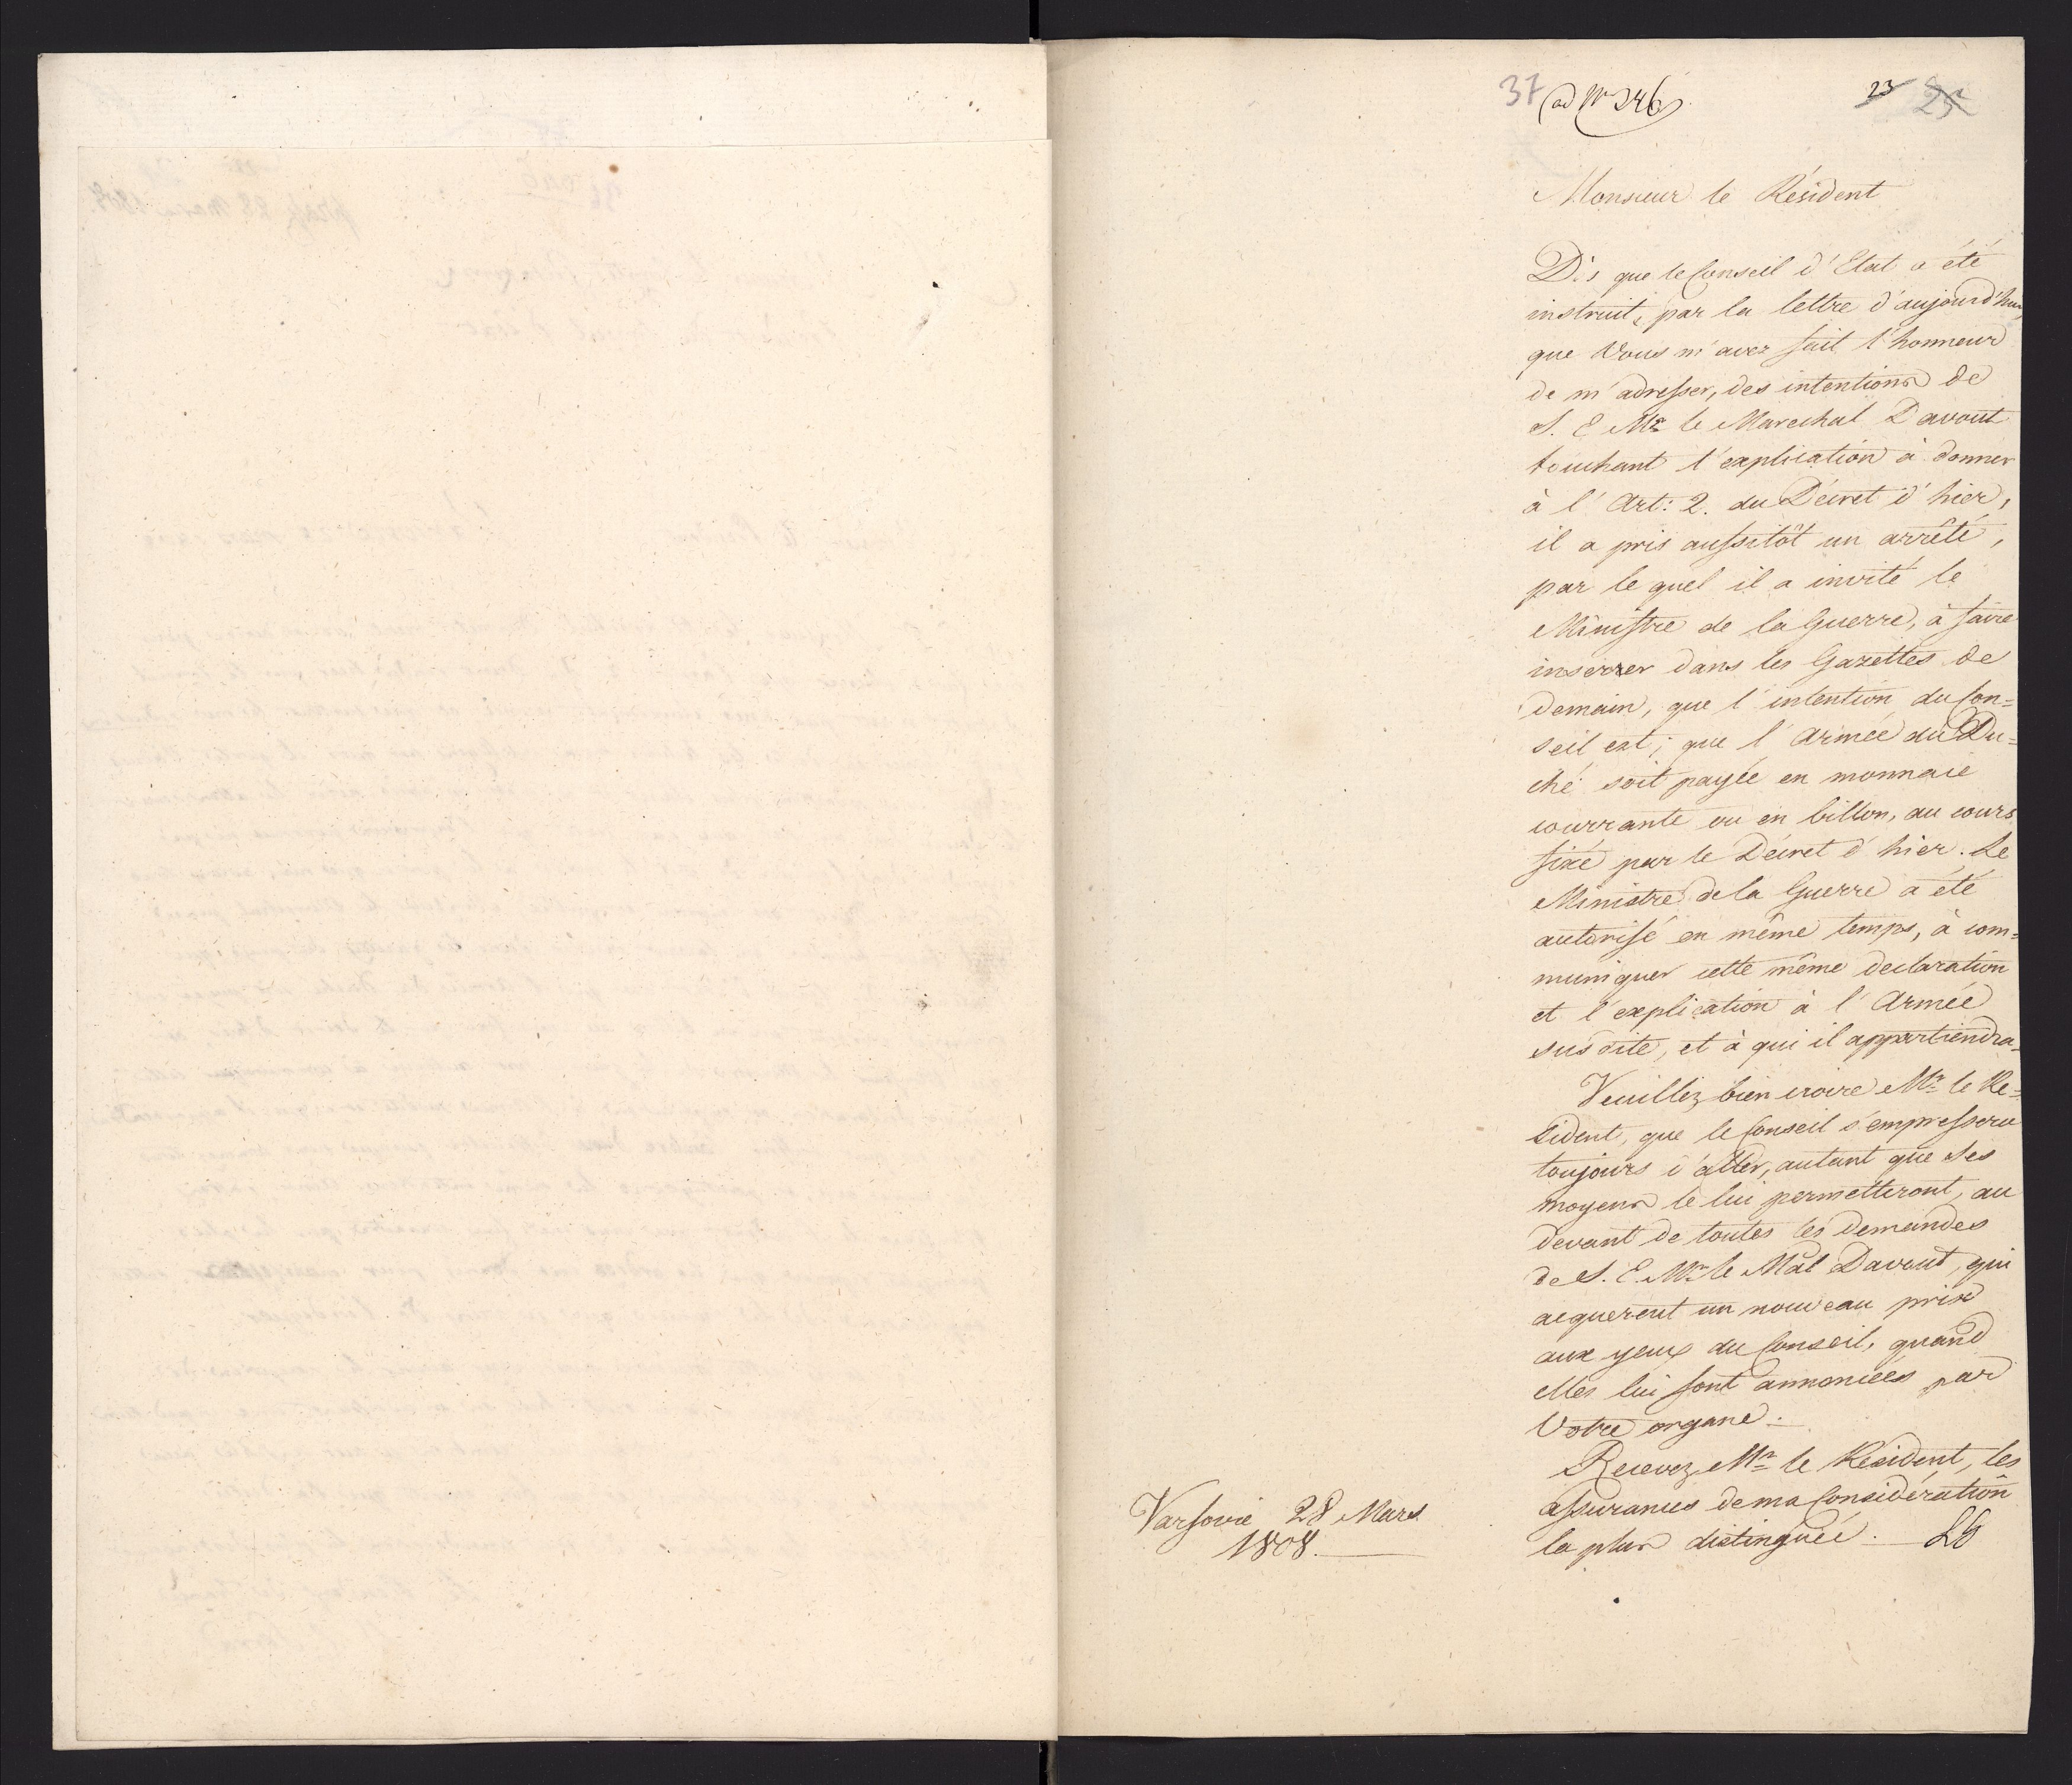 37 ad Nr 246
23 25
Monsieur le Résident
Dès que le Conseil d'Etat a été
instruit, par la lettre d'aujourd'hui,
que Vous m'avez fait l'honneur
de m'adresser, des intentions de
S. E Mr le Marechal Davout
touchant l'explication à donner
à l'Art: 2. du Décret d'hier,
il a pris aussitôt un arrêté,
par le quel il a invité le
Ministre de la Guerre, à faire
inserrer dans les Gazettes de
demain, que l'intention du Con=
seil est; que l'Armée du Du=
ché soit payée en monnaie
courrante ou en billon, au cours
fixé par le Décret d'hier. Le
Ministre de la Guerre a été
autorisé en même temps, à com=
muniquer cette même declaration
et l'explication à l'Armée
susdite, et à qui il appartiendra.
Veuillez bien croire Mr le Ré=
sident, que le Conseil s'empressera
toujours d'aller, autant que ses
moyens le lui permetteront, au
devant de toutes les demandes
de S. E. Mr le Mal Davout, qui
acquerent un nouveau prix
aux yeux du Conseil, quand
elles lui sont annoncées par
Votre organe.
Recevez Mr le Résident, les
assurances de ma Considération
la plus distinguée.
Varsovie 28 Mars
1808.